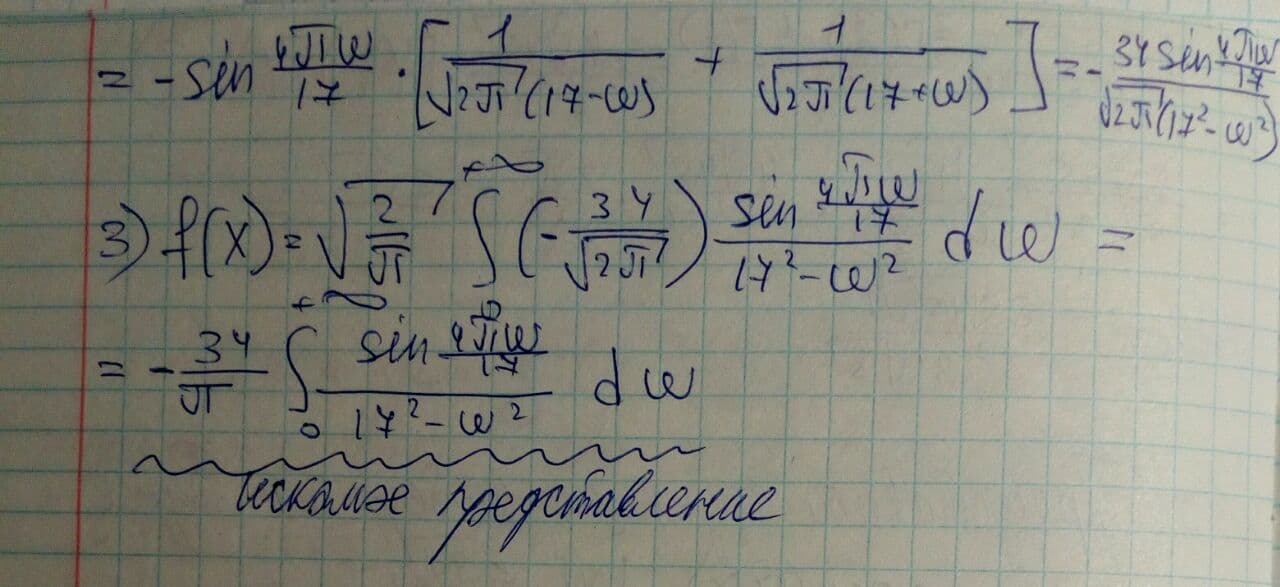 = -sin 4πω/17 · [1/(√2π (17-ω)) + 1/(√2π (17+ω))] = -34 sin 4πω/17 / (√2π (17²-ω²))
3) f(x) = √(2/π) ∫₀^{+∞} (-34/√2π) sin 4πω/17 / (17²-ω²) dω =
= -34/π ∫₀^{+∞} sin 4πω/17 / (17²-ω²) dω
Искомое представление